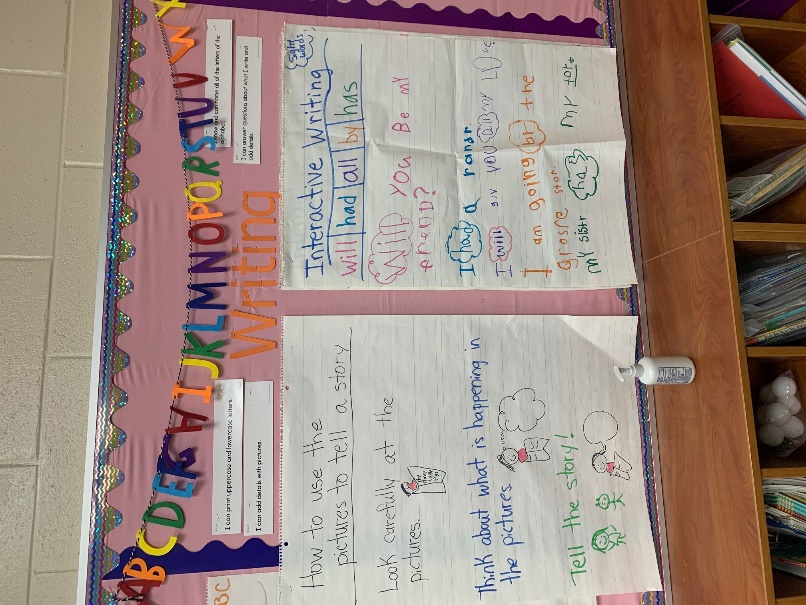 ABCDEFGHIJKLMNOPQRSTUVWX
Writing
I can print uppercase and lowercase letters.
I can add details with pictures.
and can name all of the letters of the
alphabet.
I can answer questions about what I write and
add details.
BC
How to use the
pictures to tell a story
Look carefully at the
pictures.
Think about what is happening in
the pictures.
Tell the story!
Interactive Writing
sight
words
will had all by has
Will You Be My
I had a
I will giv you all my
I am going by the
grosre stor.
my sistr has my